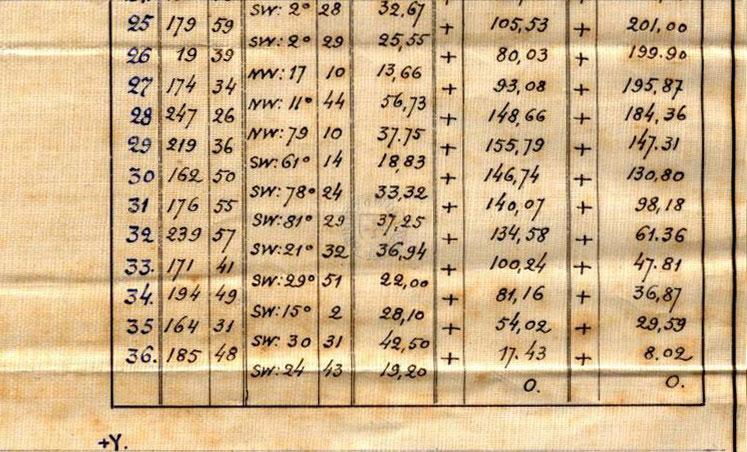 SW: 2° 28 32,67
25 179 59 + 105,53 + 201,00
SW: 2° 29 25,55
26 19 39 + 80,03 + 199.90
NW: 17 10 13,66
27 174 34 + 93,08 + 195,87
NW: 11° 44 56,73
28 247 26 + 148,66 + 184,36
NW: 79 10 37.75
29 219 36 + 155,79 + 147.31
SW: 61° 14 18,83
30 162 50 + 146,74 + 130,80
SW: 78° 24 33,32
31 176 55 + 140,07 + 98,18
SW: 81° 29 37,25
32 239 57 + 134,58 + 61.36
SW: 21° 32 36,94
33. 171 41 + 100,24 + 47.81
SW: 29° 51 22,00
34. 194 49 + 81,16 + 36,87
SW: 15° 2 28,10
35 164 31 + 54,02 + 29,59
SW: 30 31 42,50
36. 185 48 + 17.43 + 8.02
SW: 24 43 19,20
0. 0.
+Y.